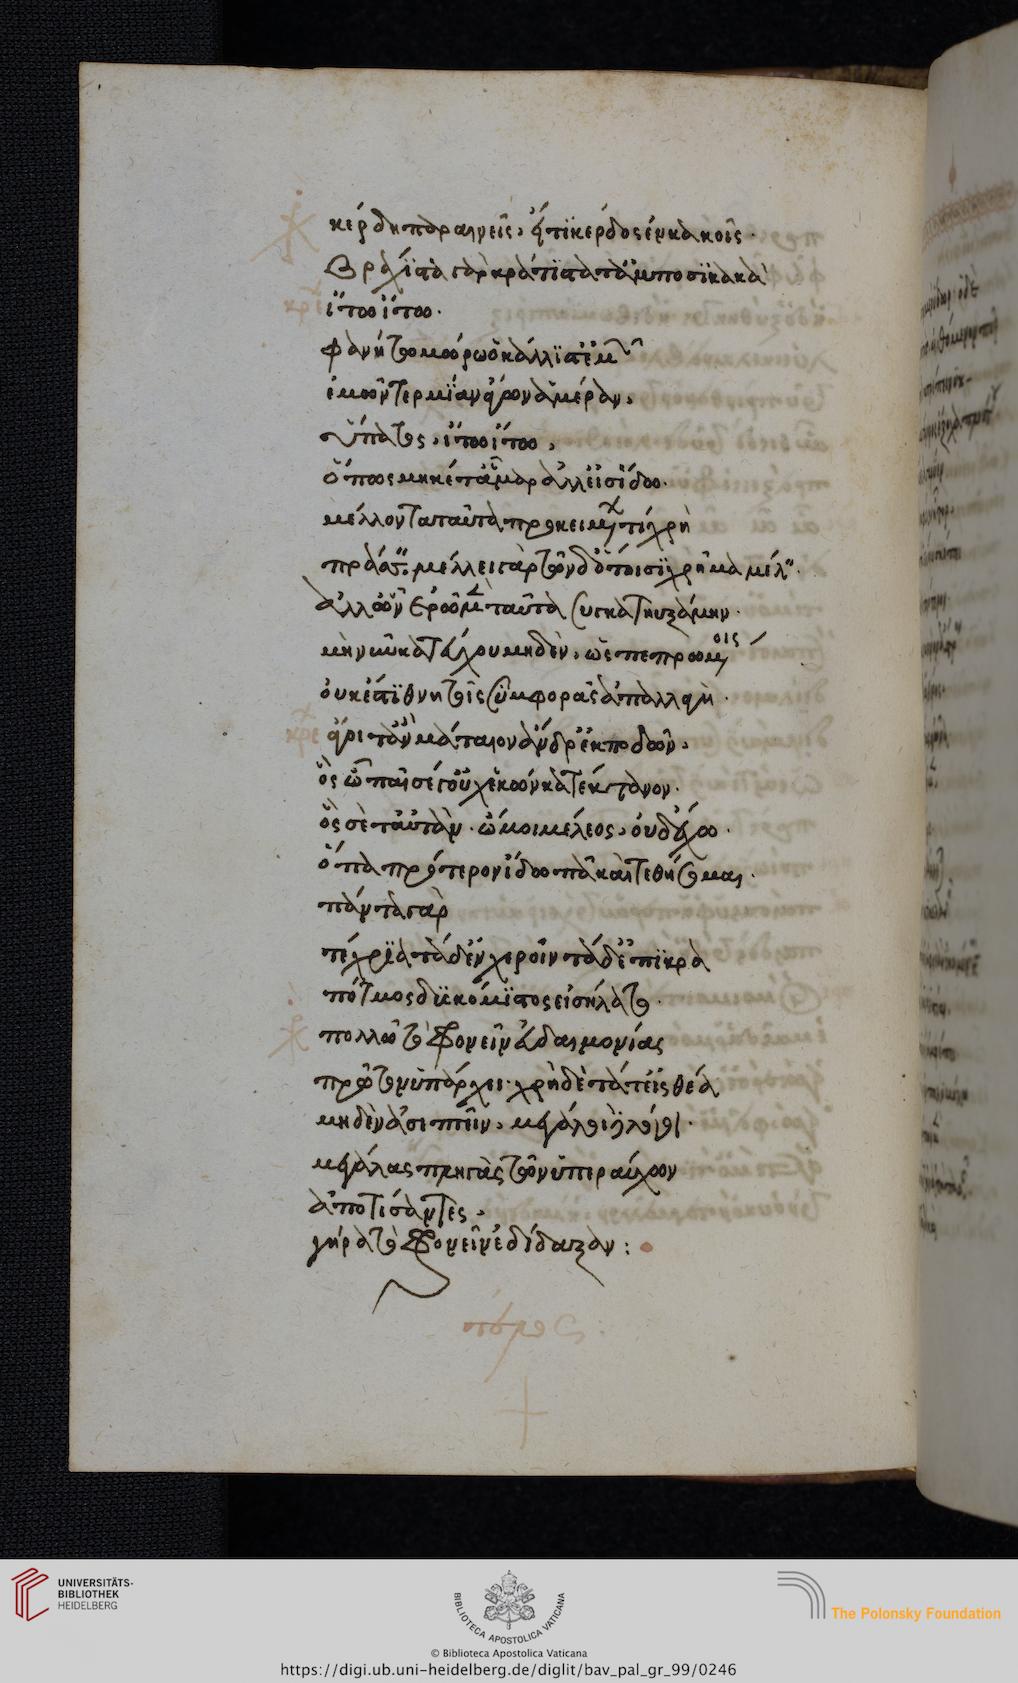 χ
κέρδη παραινεῖς, εἴ τι κέρδος ἐν κακοῖς.
βράχιστα γὰρ κράτιστα τἀν ποσὶ κακά
κρ ἴτω ἴτω.
φανήτω μόρων ὁ κάλλιστ' ἐμῶν
ἐμοὶ τερμίαν ἄγων ἁμέραν,
ὕπατος, ἴτω ἴτω,
ὅπως μηκέτ' ἆμαρ ἄλλ' εἰσίδω.
χ
μέλλοντα ταῦτα. προκειμένων τί χρὴ
πράσσειν. μέλλει γὰρ τῶνδ' ὅτοισι χρὴ μέλειν.
ἀλλ' ὧν ἐρῶμεν ταῦτα συγκατηυξάμην.
μὴ νῦν κατεύχου μηδέν, ὡς πεπρωμένης
οὐκ ἔστι θνητοῖς συμφορᾶς ἀπαλλαγή.
κρε ἄγοιτ' ἂν μάταιον ἄνδρ' ἐκποδών,
ὃς ὦ παῖ σέ γ' οὐχ ἑκὼν κατέκτανον.
ὃς σὲ ταύταν. ὤμοι μέλεος, οὐδ' ἔχω.
ὅπα πρότερον ἴδω πᾶ καὶ τεθήσομαι.
πάντα γὰρ
λέχρια τάδ' ἐν χεροῖν τάδ' ἐπὶ κρα
πότμος δυσκόμιστος εἰσήλατο.
χ
πολλῷ τὸ φρονεῖν εὐδαιμονίας
πρῶτον ὑπάρχει. χρὴ δὲ τά τ' εἰς θεά
μηδὲν ἀσεπτεῖν, μεγάλοι λόγοι.
μεγάλας πληγὰς τῶν ὑπεραύχων
ἀποτίσαντες,
γήρᾳ τὸ φρονεῖν ἐδίδαξαν:
τέλος:
UNIVERSITÄTS-
BIBLIOTHEK
HEIDELBERG
BIBLIOTECA APOSTOLICA VATICANA
The Polonsky Foundation
© Biblioteca Apostolica Vaticana
https://digi.ub.uni-heidelberg.de/diglit/bav_pal_gr_99/0246